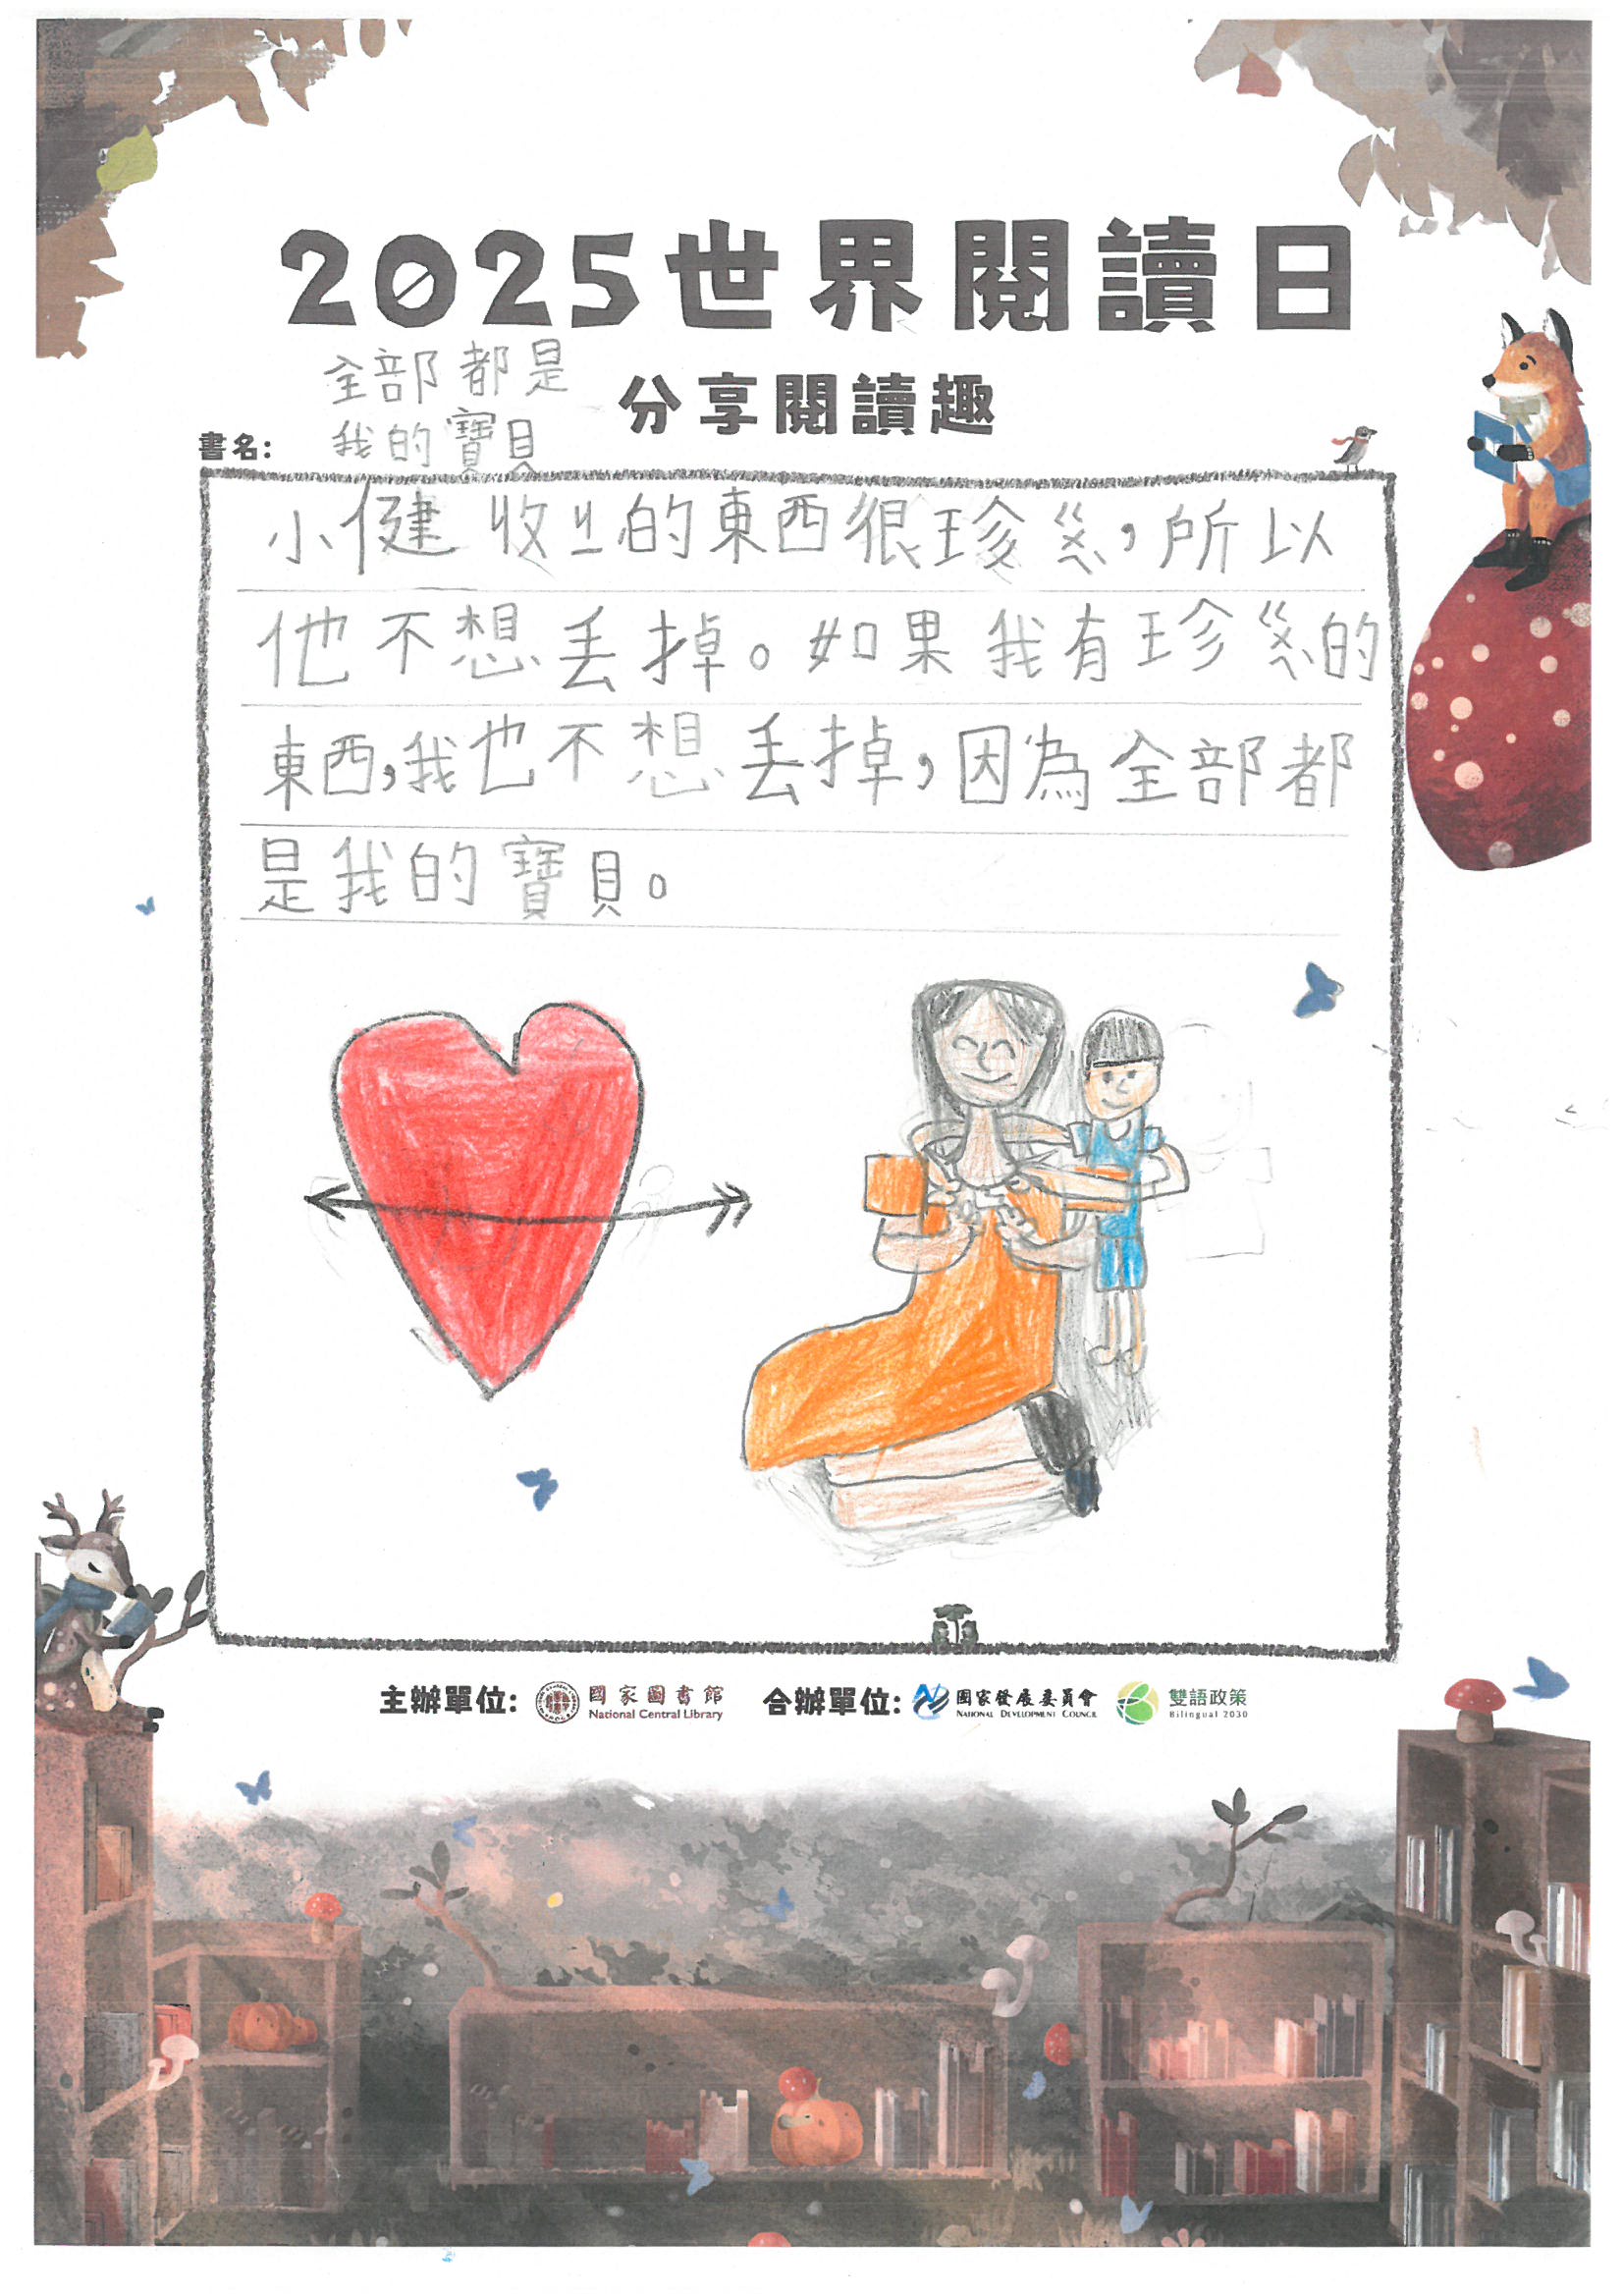 2025世界閱讀日
分享閱讀趣
書名:
全部都是
我的寶貝
小健收ㄐㄧ的東西很珍ㄍㄨㄟˋ,所以
他不想丟掉。如果我有珍ㄍㄨㄟˋ的
東西,我也不想丟掉,因為全部都
是我的寶貝。
主辦單位: 國家圖書館 National Central Library 合辦單位: 國家發展委員會 NATIONAL DEVELOPMENT COUNCIL 雙語政策 Bilingual 2030